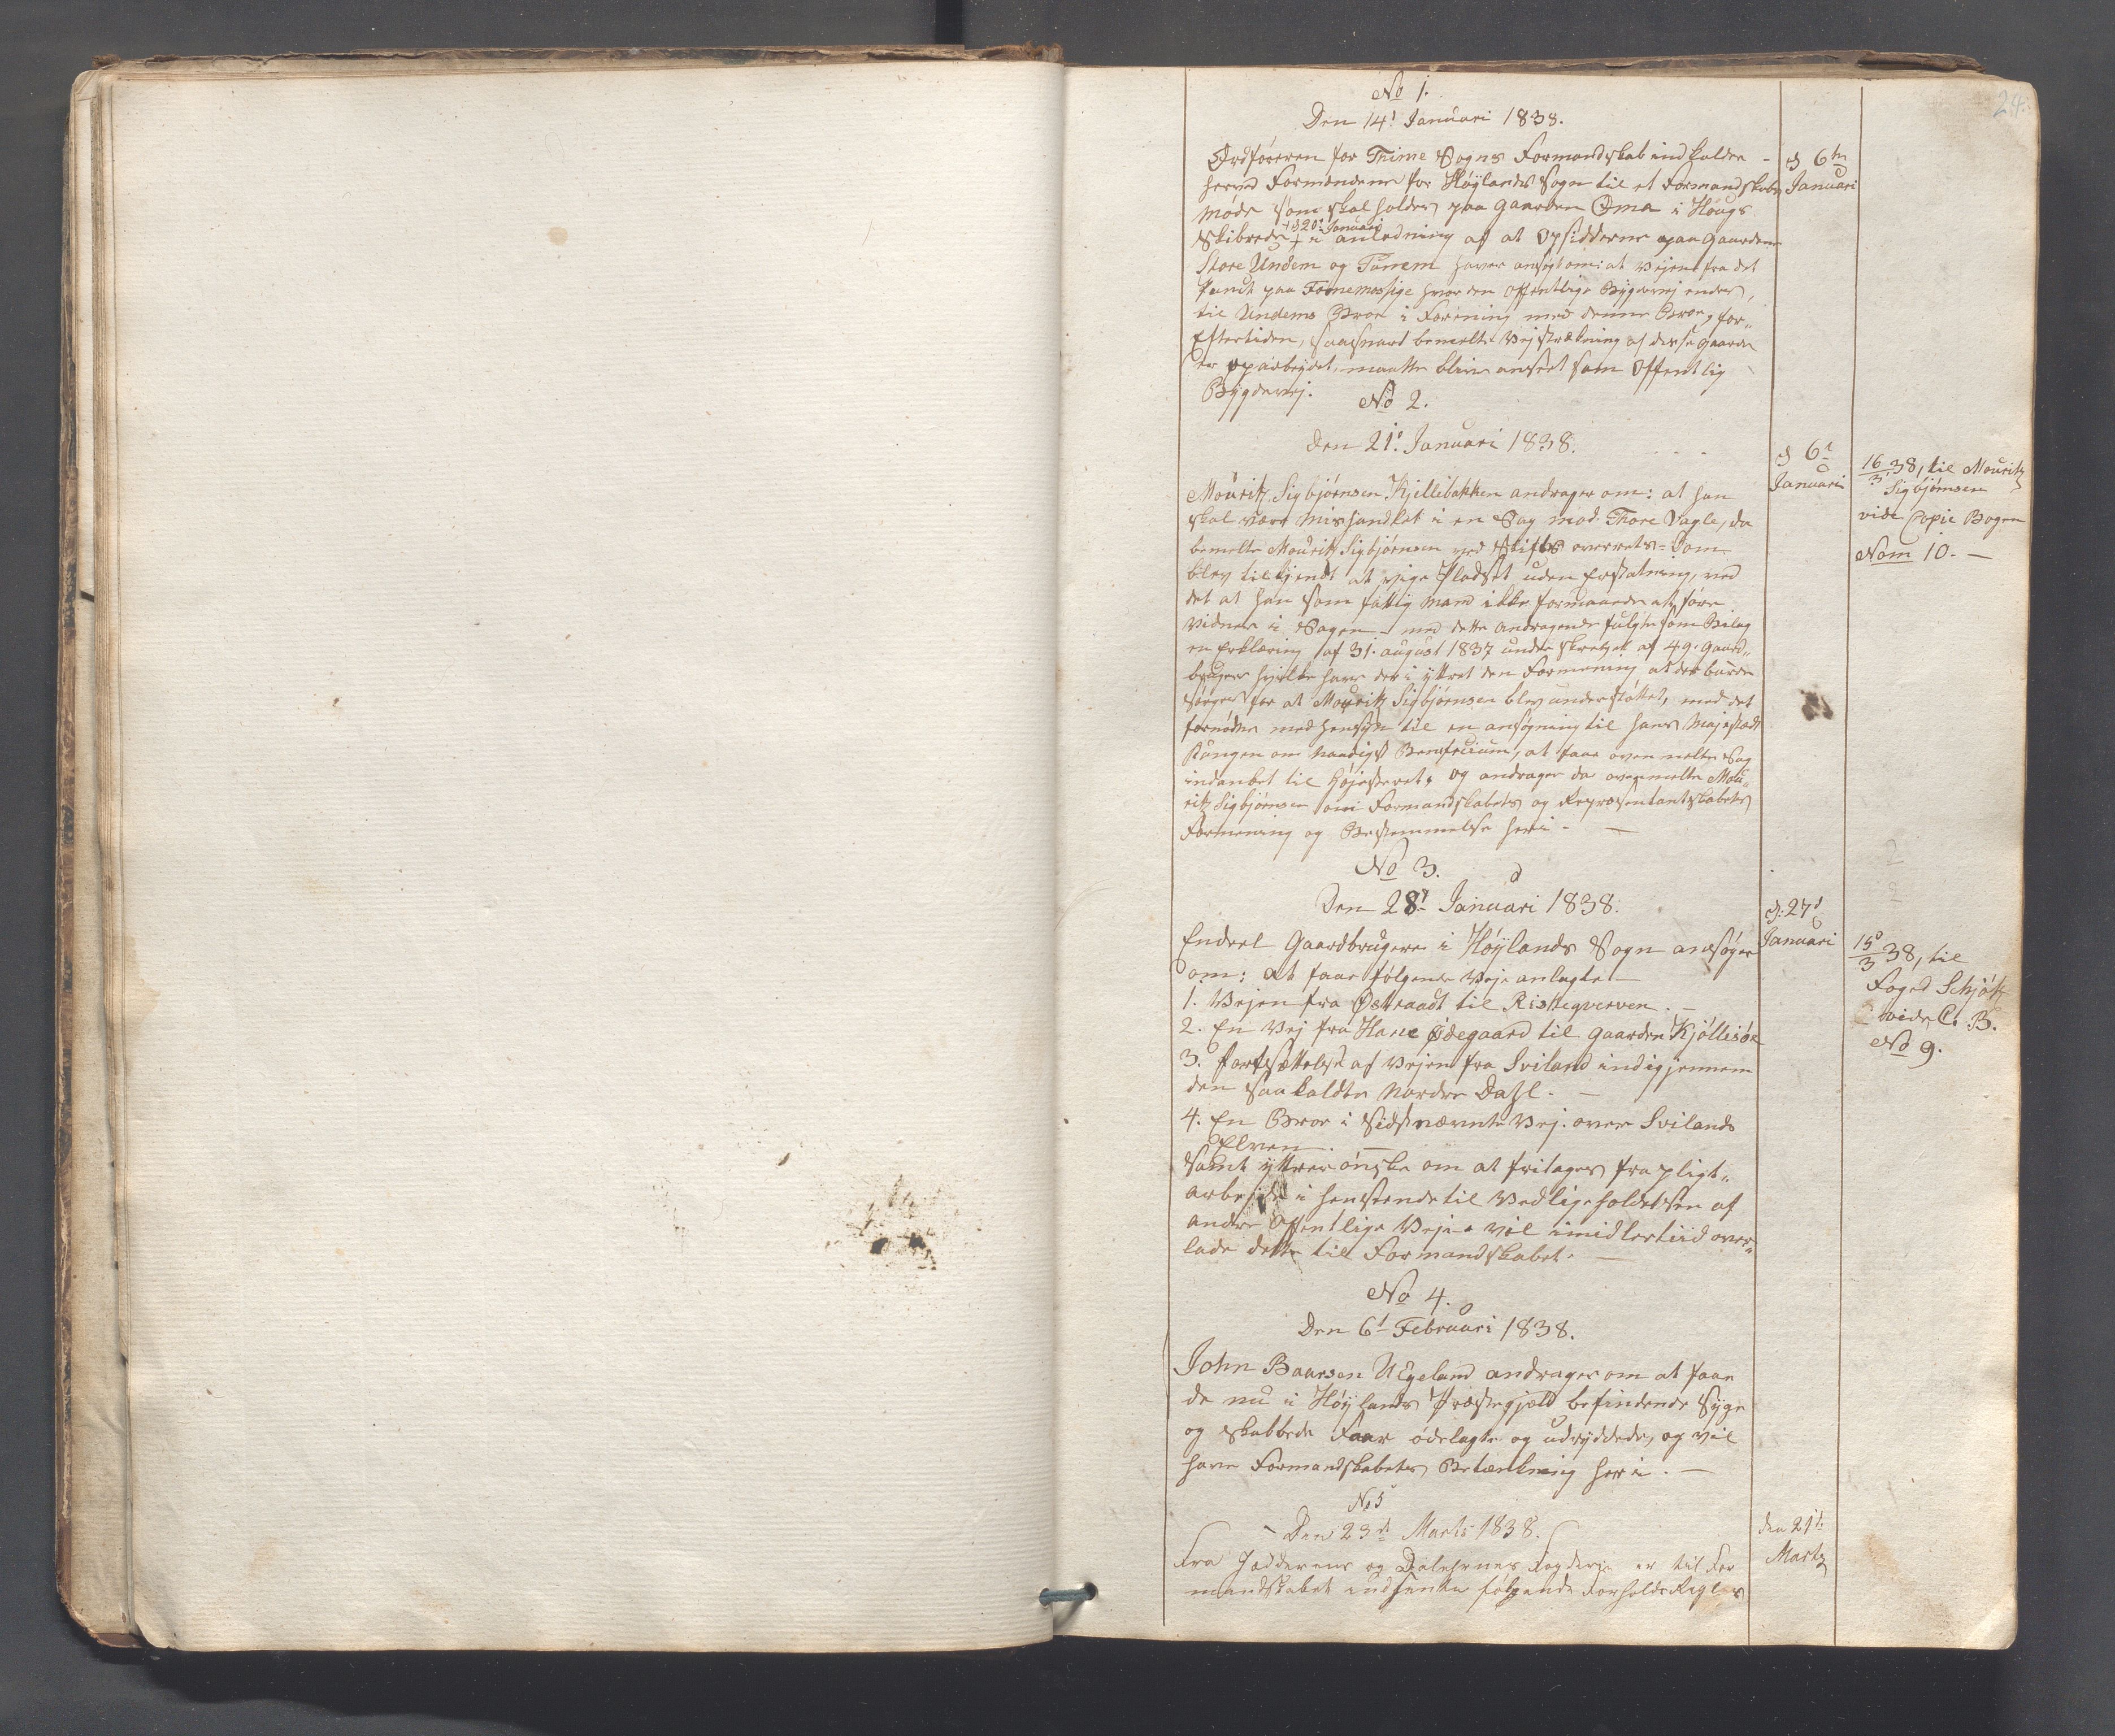 24.
No 1.
Den 14d Januari 1838.
Ordføreren for Thime Sogns Formandskab indkalder
herved Formændene for Høylands Sogn til et Formandskabs
Møde som skal holdes paa Gaarden Oma i Høugs
Skibrede + i anledning af at Opsidderne paa Gaardene
+ d 20d Januari
Store Undem og Tunem haver ansøgt om: at Vejen fra det
Punct paa Foinemossige hvor den Offentlige Bygdevej ender,
til Undems Broe i Forening med denne Broe, for
Eftertiden, saasnart bemelte Vejstrækning af disse Gaarde
er oparbejdet, maatte blive anseet som Offentlig
Bygdevej.
d 6te
Januari
No 2.
Den 21d Januari 1838.
Mouritz Sigbjørnsen Kjellebakken andrager om: at han
skal være Mishandlet i en Sag mod Thore Vagle, da
bemelte Mouritz Sigbjørnsen ved Stifts overrets-Dom
blev tilkjendt at vige Pladset uden Erstatning, ved
det at han som fattig Mand ikke formaaede at føre
Vidner i Sagen - med dette Andragende fulgte som Bilag
en Erklæring af 31. august 1837 underskrevet af 49. Gaard-
brugere hvilke have deri yttret den Formening at der burde
sørges for at Mouritz Sigbjørnsen blev understøttet, med det
fornødne med hensyn til en ansøgning til Hans Majestæt
Kongen om Naadigst Beneficium, at faae ovenmelte Sag
indanket til Højesteret, og andrager da ovenmelte Mou-
ritz Sigbjørnsen om Formandskabets og Repræsentantskabets
Formening og Bestemmelse heri -
d 6t
Januari
16/3 38, til Mouritz
Sigbjørnsen
vide Copie Bogen
Nom 10. -
No 3.
Den 28d Januari 1838.
Endeel Gaardbrugere i Høylands Sogn ansøger
om: at faae følgende Veje anlagte
1. Vejen fra Østraadt til Riskeqverven. -
2. En Vej fra Hane Ødegaard til Gaarden Kjøllesøe
3. Fortsættelse af Vejen fra Sviland ind igjennem
den saakaldte Nordre Dahl. -
4. En Broe i sidstnævnte Vej. over Svilands
Elven. -
Samt yttrer ønske om at fritages fra pligt-
arbejde i henseende til Vedligeholdelsen af
andre Offentlige Veje - vil imidlertiid over-
lade dette til Formandskabet. -
d. 27d
Januari
15/3 38, til
Foged Schjøtz
vide C. B.
No 9.
No 4.
Den 6t Februari 1838.
John Baarsen UEgeland andrager om at faae
de nu i Høylands Præstegjæld befindende Syge
og skabbede Faar ødelagte og udryddede, og vil
have Formandskabets Betænkning heri. -
No 5
Den 23d Marts 1838.
Fra Jædderens og Dalehrnes Fogderie er til For
mandskabet indsendte følgende ForholdsRegler
den 21de
Marts